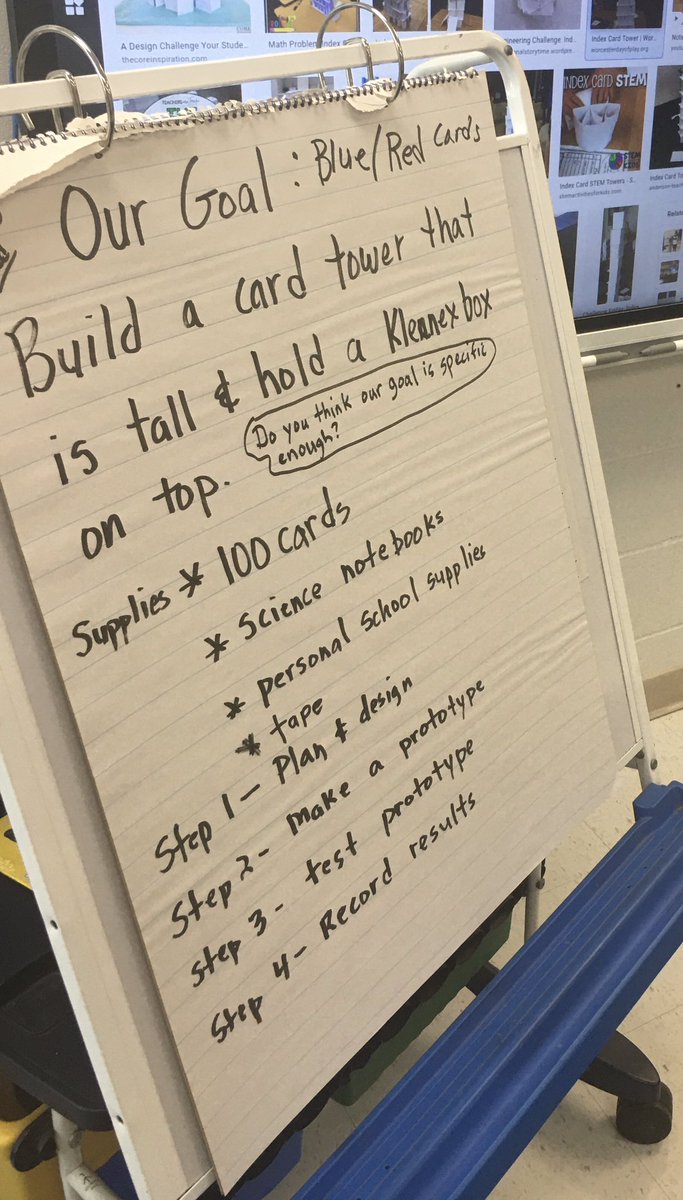 A Design Challenge Your Stude...
thecoreinspiration.com
Math Problem
Index Card Tower | Wor...
worcesterdayofplay.org
INDEX CARD STEM
Index Card STEM Towers - S...
Our Goal : Blue/Red Cards
Build a card tower that
is tall & hold a Kleenex box
on top.
Do you think our goal is specific
enough?
Supplies * 100 cards
* science notebooks
* personal school supplies
* tape
Step 1 - Plan & design
Step 2 - Make a prototype
Step 3 - test prototype
Step 4 - Record results